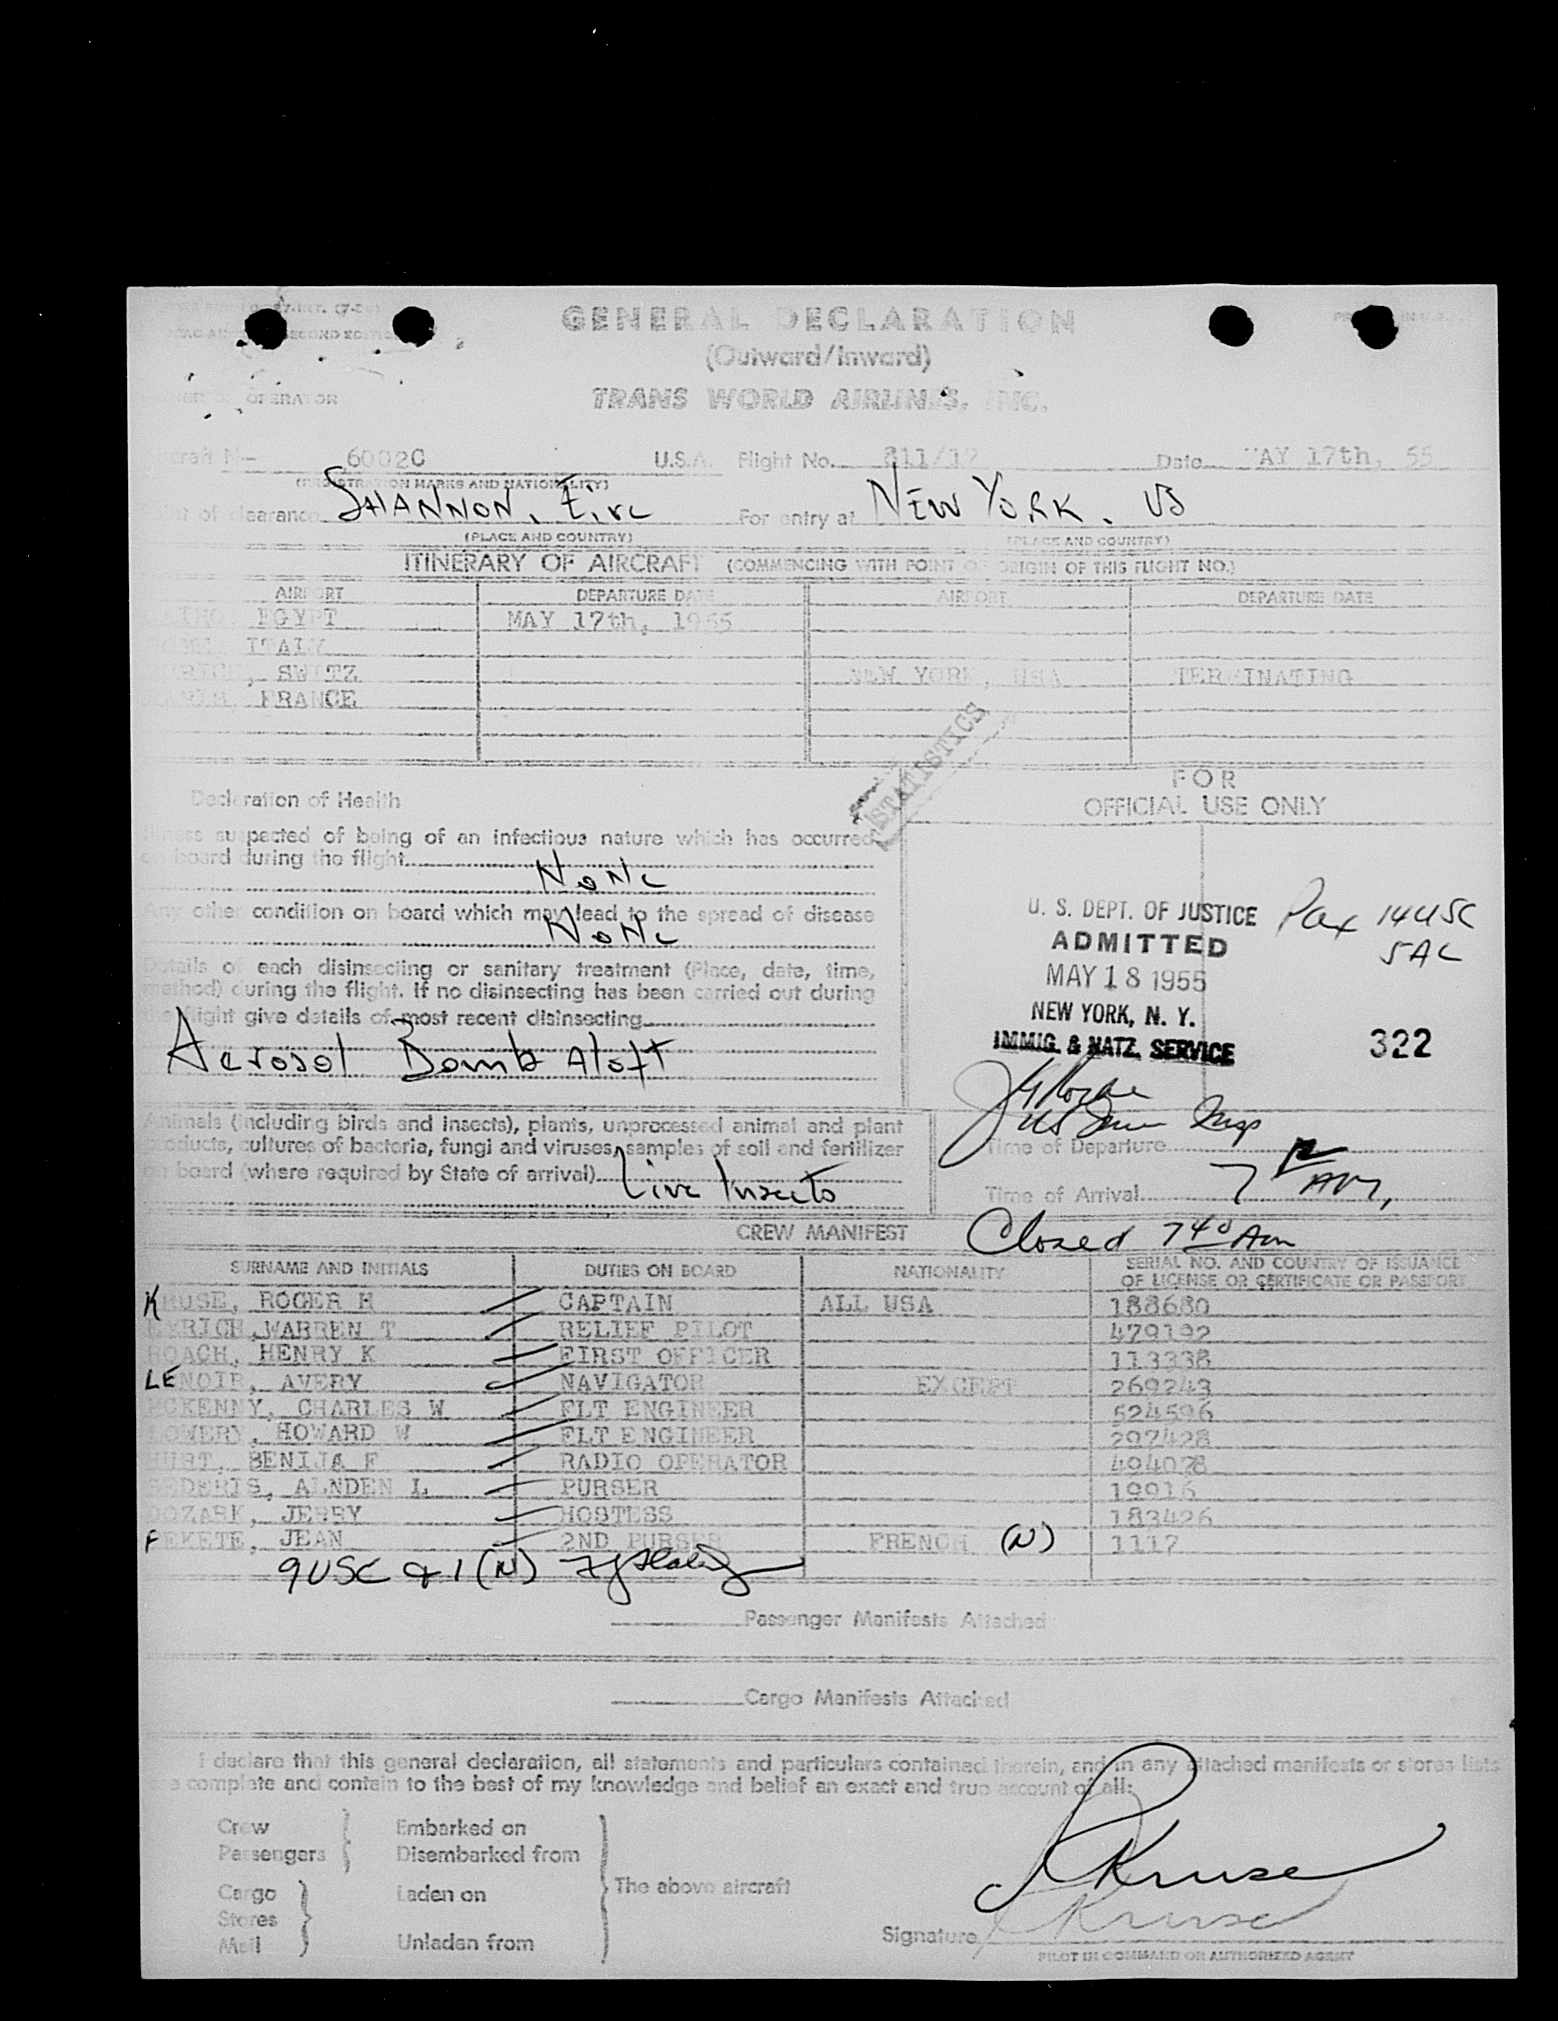 GENERAL DECLARATION
(Outward/Inward)
TRANS WORLD AIRLINES, INC.
OPERATOR
6002C U.S.A. Flight No. 811/17 Date MAY 17th, 55
(REGISTRATION MARKS AND NATIONALITY)
Point of clearance SHANNON, Eire For entry at NEW YORK. US
(PLACE AND COUNTRY) (PLACE AND COUNTRY)
ITINERARY OF AIRCRAFT (COMMENCING WITH POINT OF ORIGIN OF THIS FLIGHT NO.)
AIRPORT DEPARTURE DATE AIRPORT DEPARTURE DATE
EGYPT MAY 17th, 1955
ITALY
SWITZ NEW YORK, USA TERMINATING
FRANCE
STATISTICS
FOR
OFFICIAL USE ONLY
Declaration of Health
Illness suspected of being of an infectious nature which has occurred
on board during the flight
None
Any other condition on board which may lead to the spread of disease
None
Details of each disinsecting or sanitary treatment (Place, date, time,
method) during the flight. If no disinsecting has been carried out during
the flight give details of most recent disinsecting
Aerosol Bomb Aloft
U. S. DEPT. OF JUSTICE
ADMITTED
MAY 18 1955
NEW YORK, N. Y.
IMMIG. & NATZ. SERVICE
Pax 14 USC
5 AC
322
Animals (including birds and insects), plants, unprocessed animal and plant
products, cultures of bacteria, fungi and viruses, samples of soil and fertilizer
on board (where required by State of arrival) Live Insects
Time of Departure
Time of Arrival 7 12 AM,
CREW MANIFEST Closed 7 40 Am
SURNAME AND INITIALS DUTIES ON BOARD NATIONALITY SERIAL NO. AND COUNTRY OF ISSUANCE
OF LICENSE OR CERTIFICATE OR PASSPORT
KRUSE, ROGER H CAPTAIN ALL USA 188680
WARREN T RELIEF PILOT 479192
ROACH, HENRY K FIRST OFFICER 113338
LENOIR, AVERY NAVIGATOR EXCEPT 269243
MCKENNY, CHARLES W FLT ENGINEER 524596
LOWERY, HOWARD W FLT ENGINEER 297428
HURT, BENIJA F RADIO OPERATOR 494078
ALNDEN L PURSER 19916
DOZARK, JERRY HOSTESS 183426
FEKETE, JEAN 2ND PURSER FRENCH (N) 1117
9 USC & 1 (N)
Passenger Manifests Attached
Cargo Manifests Attached
I declare that this general declaration, all statements and particulars contained therein, and in any attached manifests or stores lists
are complete and contain to the best of my knowledge and belief an exact and true account of all:
Crew Embarked on
Passengers Disembarked from
Cargo Laden on The above aircraft
Stores
Mail Unladen from
Signature R Kruse
Kruse
PILOT IN COMMAND OR AUTHORIZED AGENT